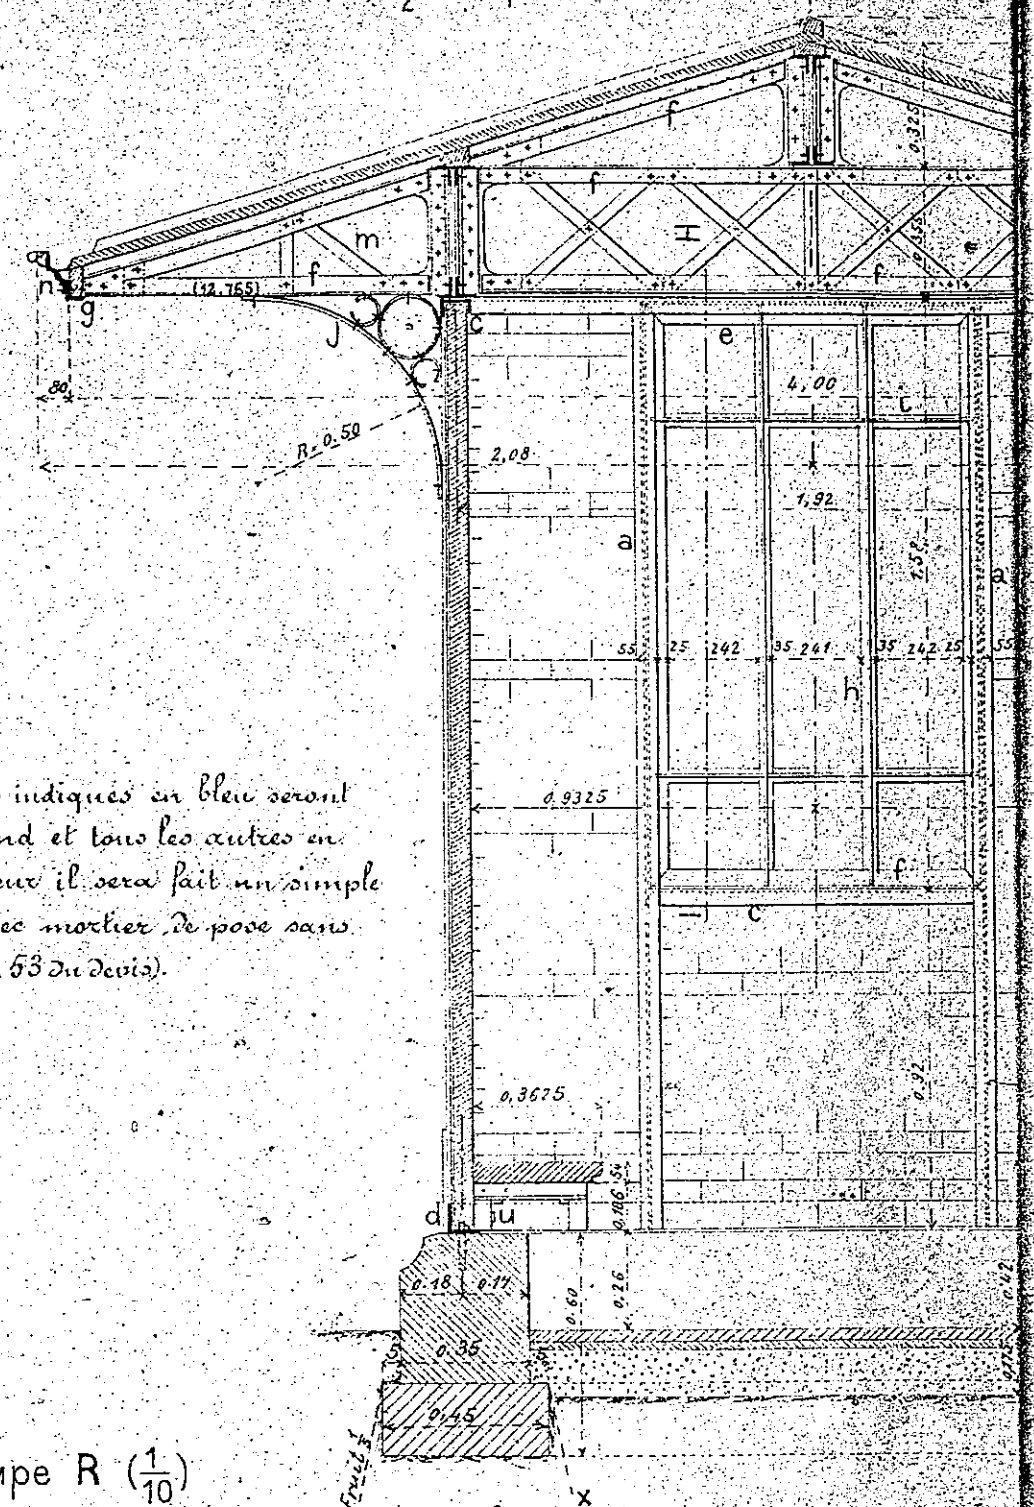 2
f
0,325
f
H
0,355
m
f
(12,765)
f
n
g
J
c
e
80
4,00
i
R=0,50
2,08
1,92
a
1,52
a
55 25 242 35 241 35 242 25 55
h
indiqués en bleu seront
0,9325
nd et tous les autres en
eur il sera fait un simple
f
ec mortier de pose sans
c
53 du devis).
0,92
0,3625
0,106
d
u
0,18 0,17
0,60
0,26
0,42
5 0,35 5
0,175
0,45
Fruit
x
upe R (1/10)